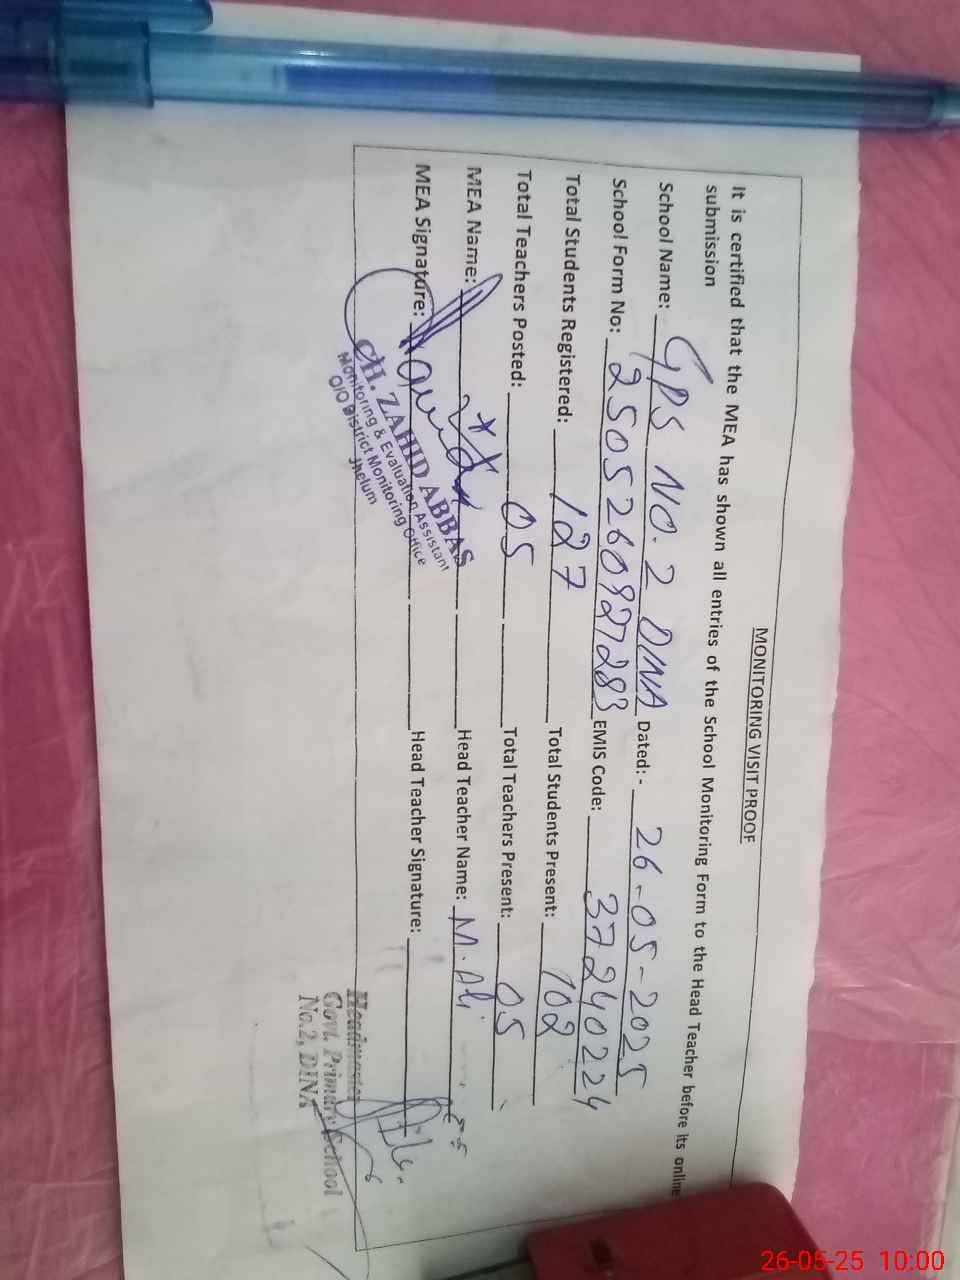 MONITORING VISIT PROOF
It is certified that the MEA has shown all entries of the School Monitoring Form to the Head Teacher before its online
submission
School Name: GPS NO. 2 DINA Dated:- 26-05-2025
School Form No: 2505260827283 EMIS Code: 37240224
Total Students Registered: 127 Total Students Present: 102
Total Teachers Posted: 05 Total Teachers Present: 05
MEA Name: Head Teacher Name: M. Ali
MEA Signature: Head Teacher Signature:
CH. ZAHID ABBAS
Monitoring & Evaluation Assistant
O/O District Monitoring Office
Jhelum
Headmaster
Govt. Primary School
No.2, DINA
26-05-25 10:00